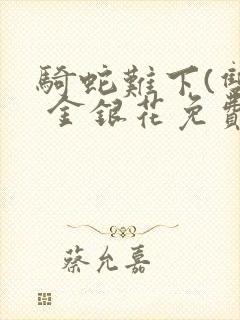 騎蛇難下(雙
金銀花免費
蔡允嘉